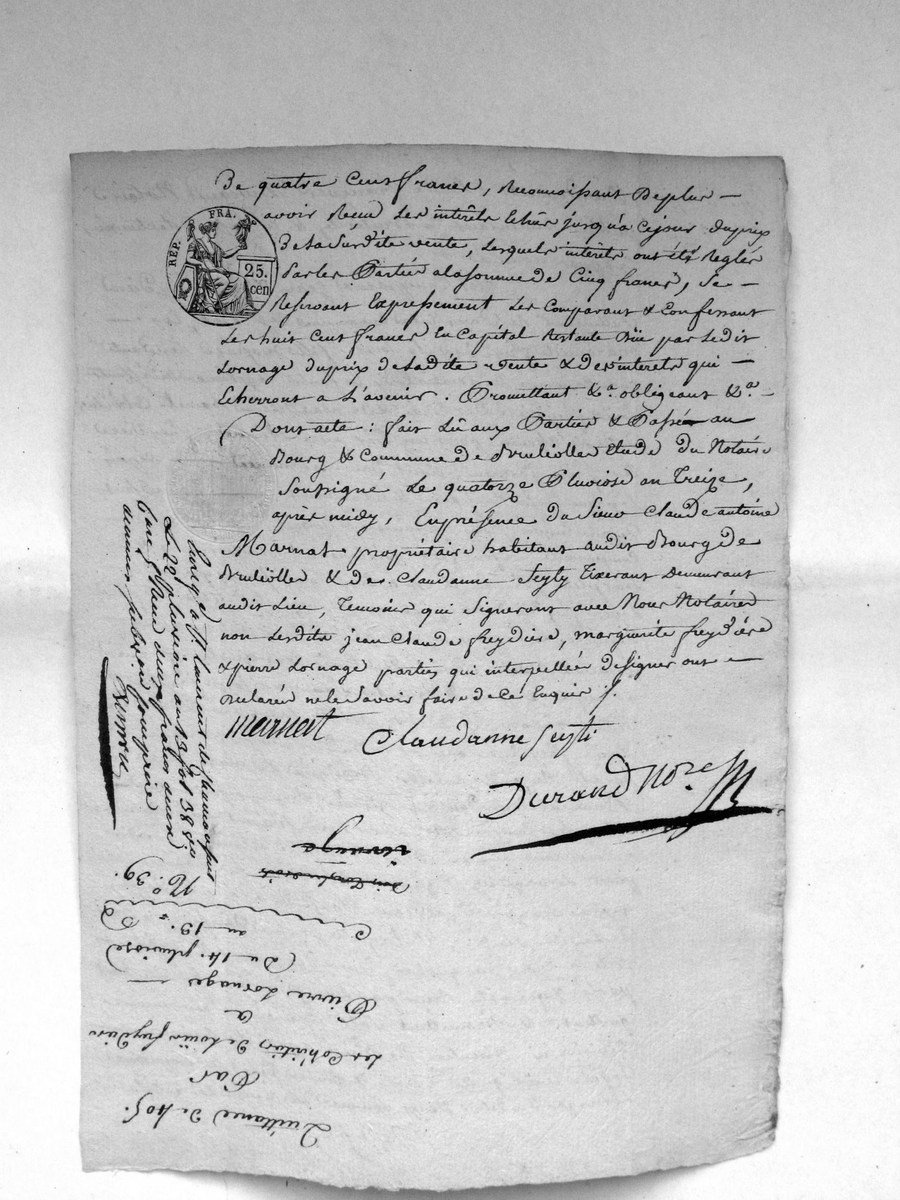 De quatre Cent francs, Reconnoissant De plus —
avoir Recu Les interêts Echûs jusqu'a Cejour Du prix
De La Susdite vente, Lesquels interêts ont étés Reglés
Par les Parties a la somme de Cinq francs, Se —
Reservant Expressement Les Comparant & Confessant
Les huit Cent francs En Capital Restante Düe par Ledit
Lornage Du prix de Ladite vente & des interets qui —
Echerront a L'avenir. Promettant &.a obligeant &.a —
Dont acte : fait Lû aux Parties & Passé au
Bourg & Commune de Brulliolles Etude Du Notaire
Soussigné Le quatorze Pluviose an Treize,
après midy, En présence Du Sieur Claude antoine
Marnat propriétaire habitant audit Bourg de
Brulliolles & de Claudanne Seyty Tixerant Demeurant
audit Lieu, Temoins qui Signeront avec Nous Notaires
non Lesdits jean Claude freydière, marguerite freydière
& pierre Lornage parties qui interpellées de signer ont —
Declarés ne le Savoir faire de Ce Enquis /.
marnat
Claudanne Seyti
Durand No.re
RÉP. FRA.
25.
cen
Enreg.é a St Laurent de Chamousset
Le 22 pluviose an 13 fol 38
Reçu deux francs
N.o 39.
Quittance De 405.
Par
Les Cohéritiers De Loüis freydière
a
Pierre Lornage —
Du 14. pluviose
an 13.